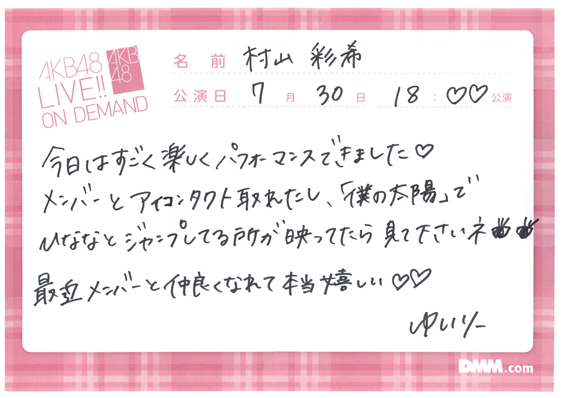 AKB48
LIVE!!
ON DEMAND
AKB
48
名前 村山 彩希
公演日 7月30日 18:♡♡公演
今日はすごく楽しくパフォーマンスできました♡
メンバーとアイコンタクト取れたし、「僕の太陽」で
ひななとジャンプしてる所が映ってたら見て下さいネ
最近メンバーと仲良くなれて本当嬉しい♡♡
ゆいりー
DMM.com